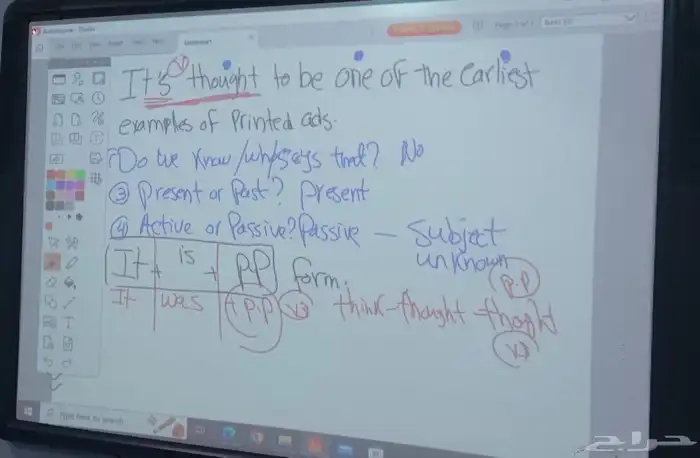 Page 1 of 1
It's thought to be one of the Earliest
(V)
examples of Printed ads.
Do we know/who says that? No
③ Present or Past? present
④ Active or Passive? Passive — Subject
unknown
It + is + pp form.
p.p
It was + p.p V3 think-thought-thought
V3
Type here to search
حراج